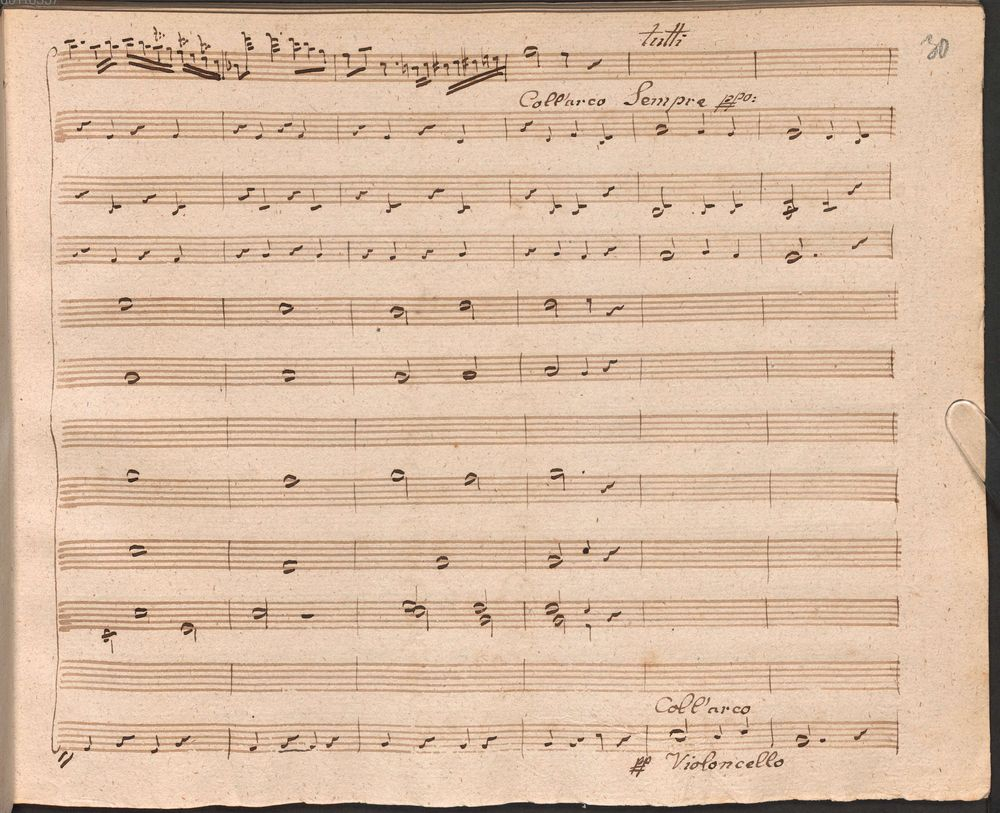 tutti
30
Coll'arco Sempre ppo:
Coll'arco
pp Violoncello